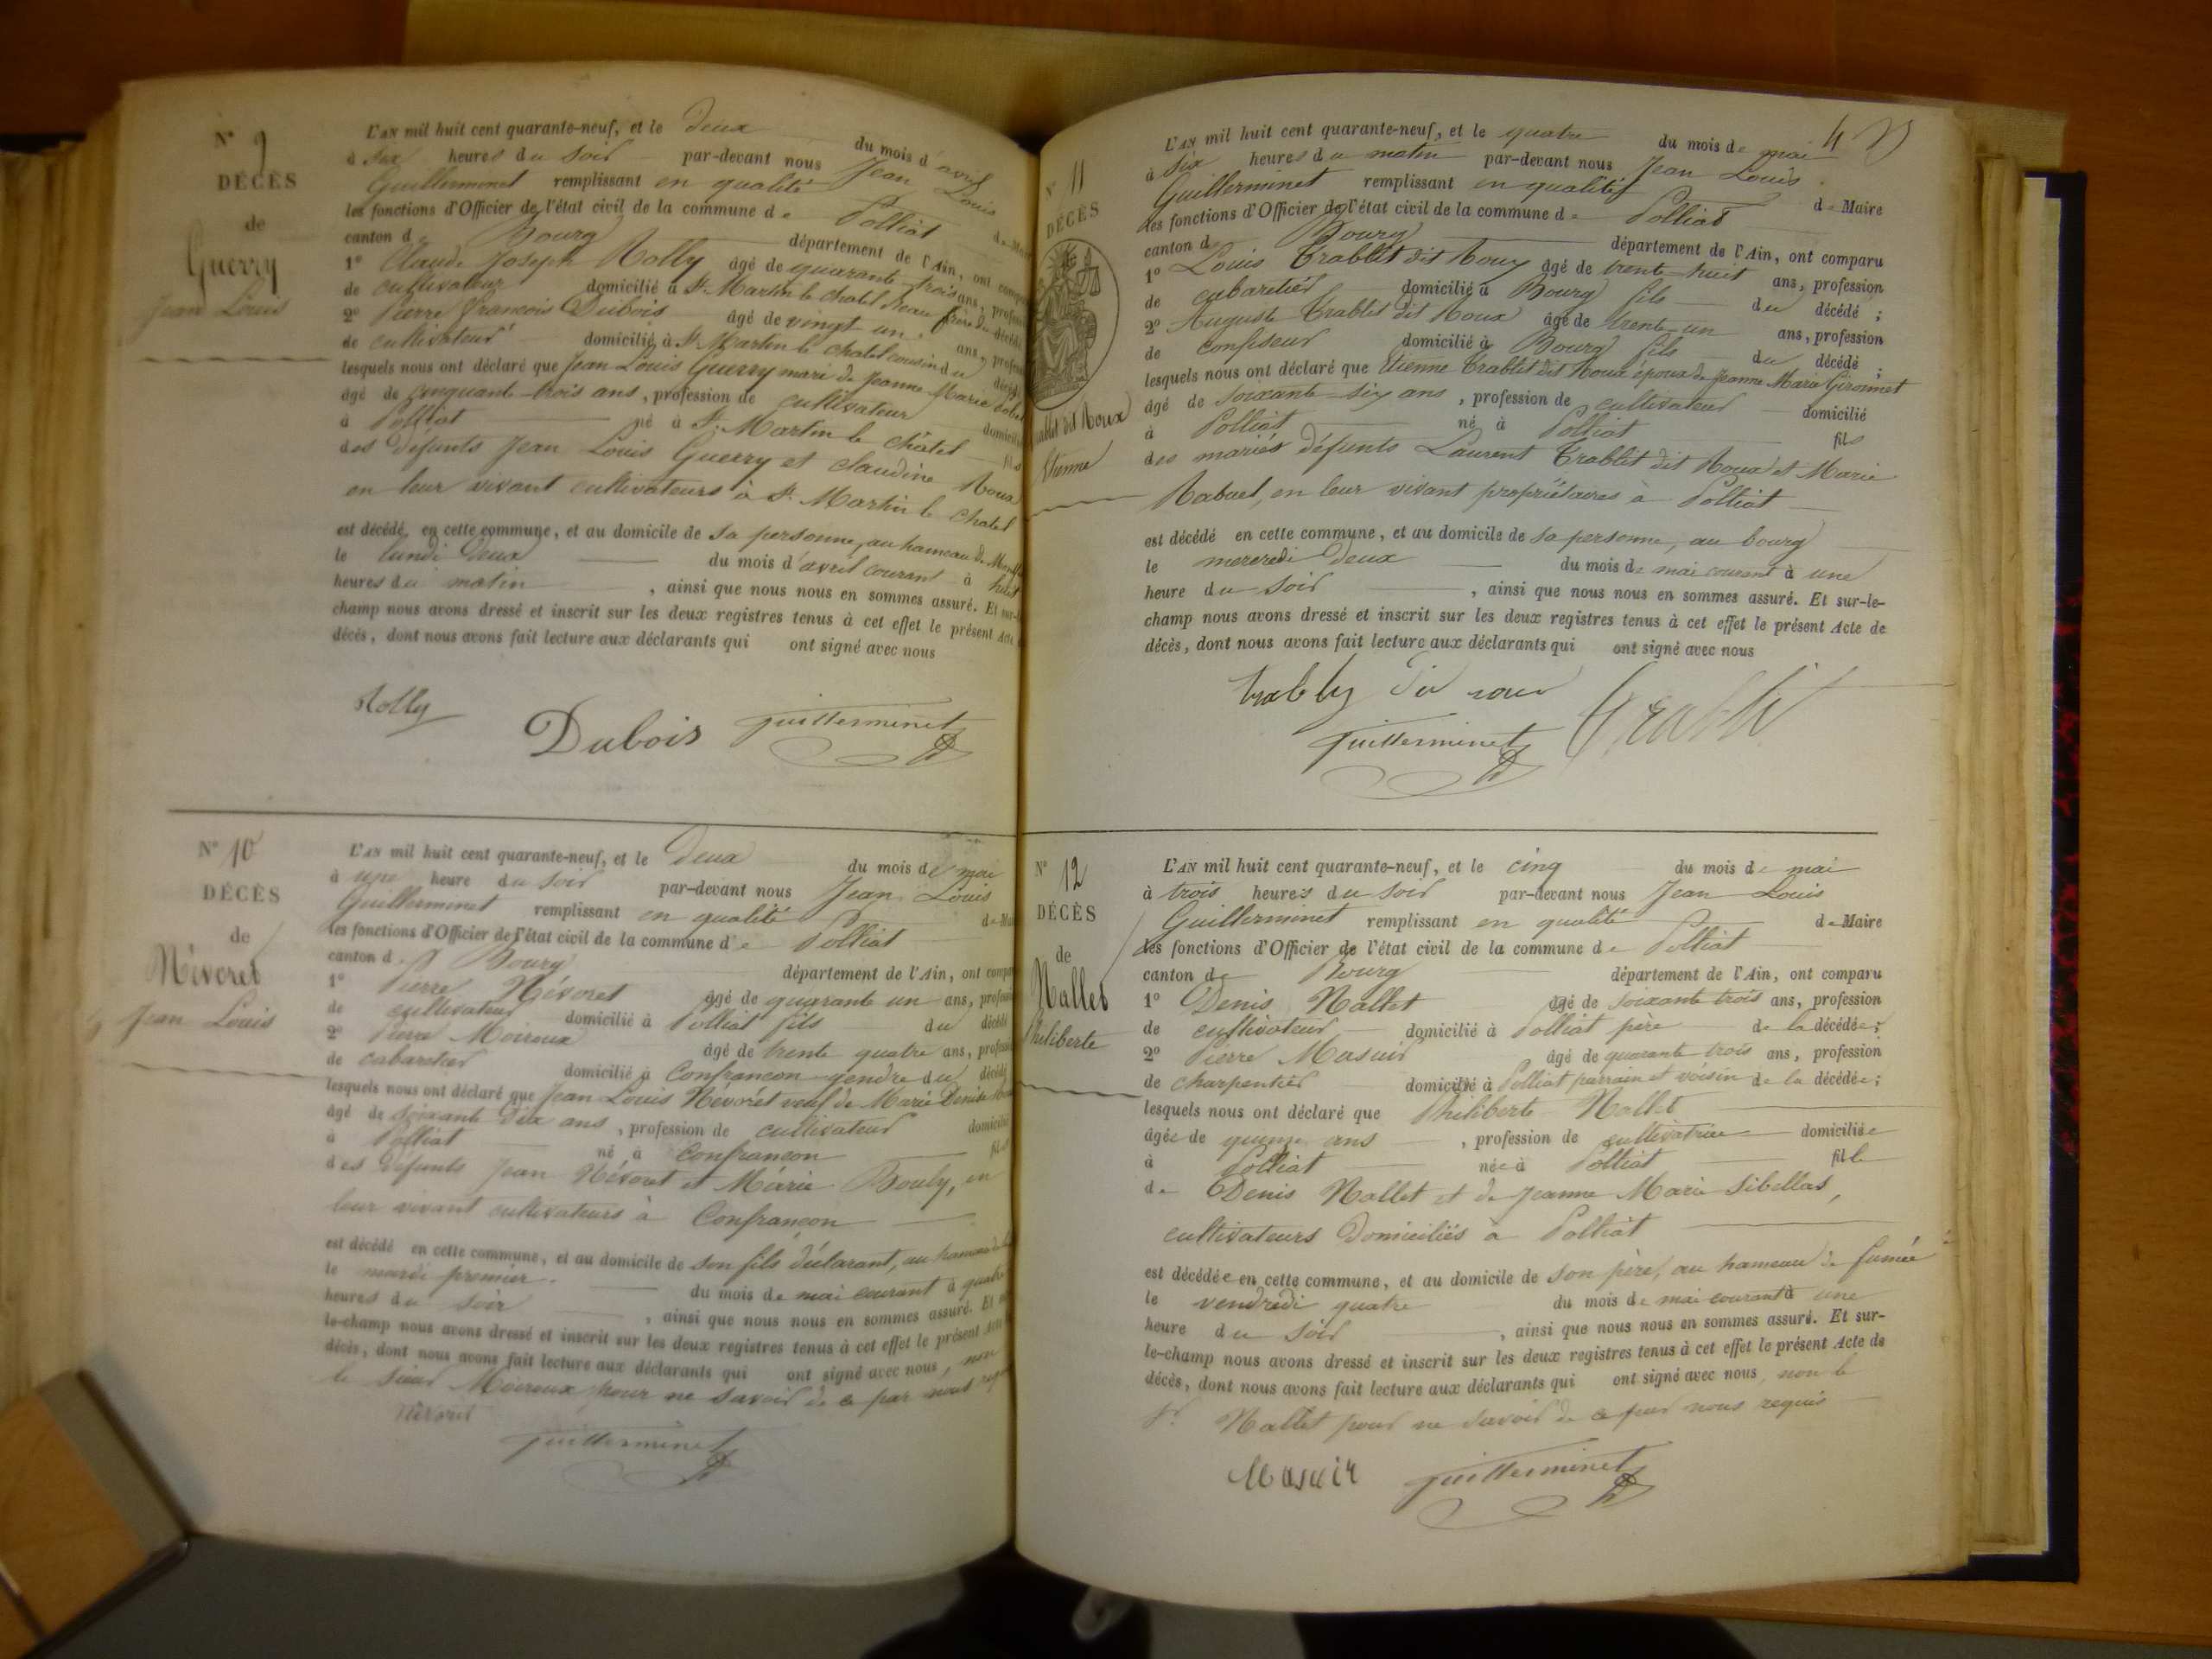 N° 9
DÉCÈS
de
Guerry
Jean Louis
L'AN mil huit cent quarante-neuf, et le deux du mois d'avril
à six heures du soir par-devant nous Jean Louis
Guillerminet remplissant en qualité de Maire
les fonctions d'Officier de l'état civil de la commune de Polliat
canton de Bourg département de l'Ain, ont
1° Claude Joseph Rolly âgé de quarante trois ans,
de cultivateur domicilié à St Martin le chatel beau frère du décédé
2° Pierre francois Dubois âgé de vingt un ans,
de cultivateur domicilié à St Martin le chatel cousin du
lesquels nous ont déclaré que Jean Louis Guerry mari de Jeanne Marie
âgé de cinquante-trois ans, profession de cultivateur
à Polliat né à St Martin le châtel fils
des défunts Jean Louis Guerry et claudine Roux
en leur vivant cultivateurs à St Martin le chatel
est décédé en cette commune, et au domicile de sa personne, au hameau de
le lundi deux du mois d'avril courant à huit
heures du matin, ainsi que nous nous en sommes assuré. Et sur-le-
champ nous avons dressé et inscrit sur les deux registres tenus à cet effet le présent Acte
décès, dont nous avons fait lecture aux déclarants qui ont signé avec nous
Rolly
Dubois Guillerminet
N° 10
DÉCÈS
de
Névoret
Jean Louis
L'AN mil huit cent quarante-neuf, et le deux du mois de mai
à une heure du soir par-devant nous Jean Louis
Guillerminet remplissant en qualité de
les fonctions d'Officier de l'état civil de la commune de Polliat
canton de Bourg département de l'Ain, ont
1° Pierre Névoret âgé de quarante un ans,
de cultivateur domicilié à Polliat fils du décédé
2° Pierre Moiroux âgé de trente quatre ans,
de cabaretier domicilié à Confrancon gendre du décédé
lesquels nous ont déclaré que Jean Louis Névorét veuf de Marie Denise
âgé de soixante dix ans, profession de cultivateur domicilié
à Polliat né à Confrancon fils
des défunts Jean Névoret et Marie Bouly, en
leur vivant cultivateurs à Confrancon
est décédé en cette commune, et au domicile de son fils déclarant, au hameau
le mardi premier du mois de mai courant à quatre
heures du soir, ainsi que nous nous en sommes assuré. Et
le-champ nous avons dressé et inscrit sur les deux registres tenus à cet effet le présent
décès, dont nous avons fait lecture aux déclarants qui ont signé avec nous, non
le sieur Moiroux pour ne savoir de ce par nous
Névoret
Guillerminet
N° 11
DÉCÈS
dit Roux
Etienne
L'AN mil huit cent quarante-neuf, et le quatre du mois de mai
à dix heures du matin par-devant nous Jean Louis
Guillerminet remplissant en qualité de Maire
les fonctions d'Officier de l'état civil de la commune de Polliat
canton de Bourg département de l'Ain, ont comparu
1° Louis Trablit dit Roux âgé de trente huit ans, profession
de cabaretier domicilié à Bourg fils du décédé ;
2° Auguste Trablit dit Roux âgé de trente-un ans, profession
de confiseur domicilié à Bourg fils du décédé ;
lesquels nous ont déclaré que Etienne Trablit dit Roux époux de Jeanne Marie
âgé de soixante-six ans, profession de cultivateur domicilié
à Polliat né à Polliat fils
des mariés défunts Laurent Trablit dit Roux et Marie
Rabuel, en leur vivant propriétaires à Polliat
est décédé en cette commune, et au domicile de sa personne, au bourg
le mercredi deux du mois de mai courant à une
heure du soir, ainsi que nous nous en sommes assuré. Et sur-le-
champ nous avons dressé et inscrit sur les deux registres tenus à cet effet le présent Acte de
décès, dont nous avons fait lecture aux déclarants qui ont signé avec nous
Guillerminet
N° 12
DÉCÈS
de
Nallet
Philiberte
L'AN mil huit cent quarante-neuf, et le cinq du mois de mai
à trois heures du soir par-devant nous Jean Louis
Guillerminet remplissant en qualité de Maire
les fonctions d'Officier de l'état civil de la commune de Polliat
canton de Bourg département de l'Ain, ont comparu
1° Denis Nallet âgé de soixante trois ans, profession
de cultivateur domicilié à Polliat père de la décédée ;
2° Pierre Masuir âgé de quarante trois ans, profession
de charpentier domicilié à Polliat parrain et voisin de la décédée ;
lesquels nous ont déclaré que Philiberte Nallet
âgée de quinze ans, profession de cultivatrice domiciliée
à Polliat née à Polliat fille
de Denis Nallet et de Jeanne Marie Sibellas,
cultivateurs domiciliés à Polliat
est décédée en cette commune, et au domicile de son père, au hameau de fumée
le vendredi quatre du mois de mai courant à une
heure du soir, ainsi que nous nous en sommes assuré. Et sur-
le-champ nous avons dressé et inscrit sur les deux registres tenus à cet effet le présent Acte de
décès, dont nous avons fait lecture aux déclarants qui ont signé avec nous, non le
Sr Nallet pour ne savoir de ce par nous requis
Masuir Guillerminet